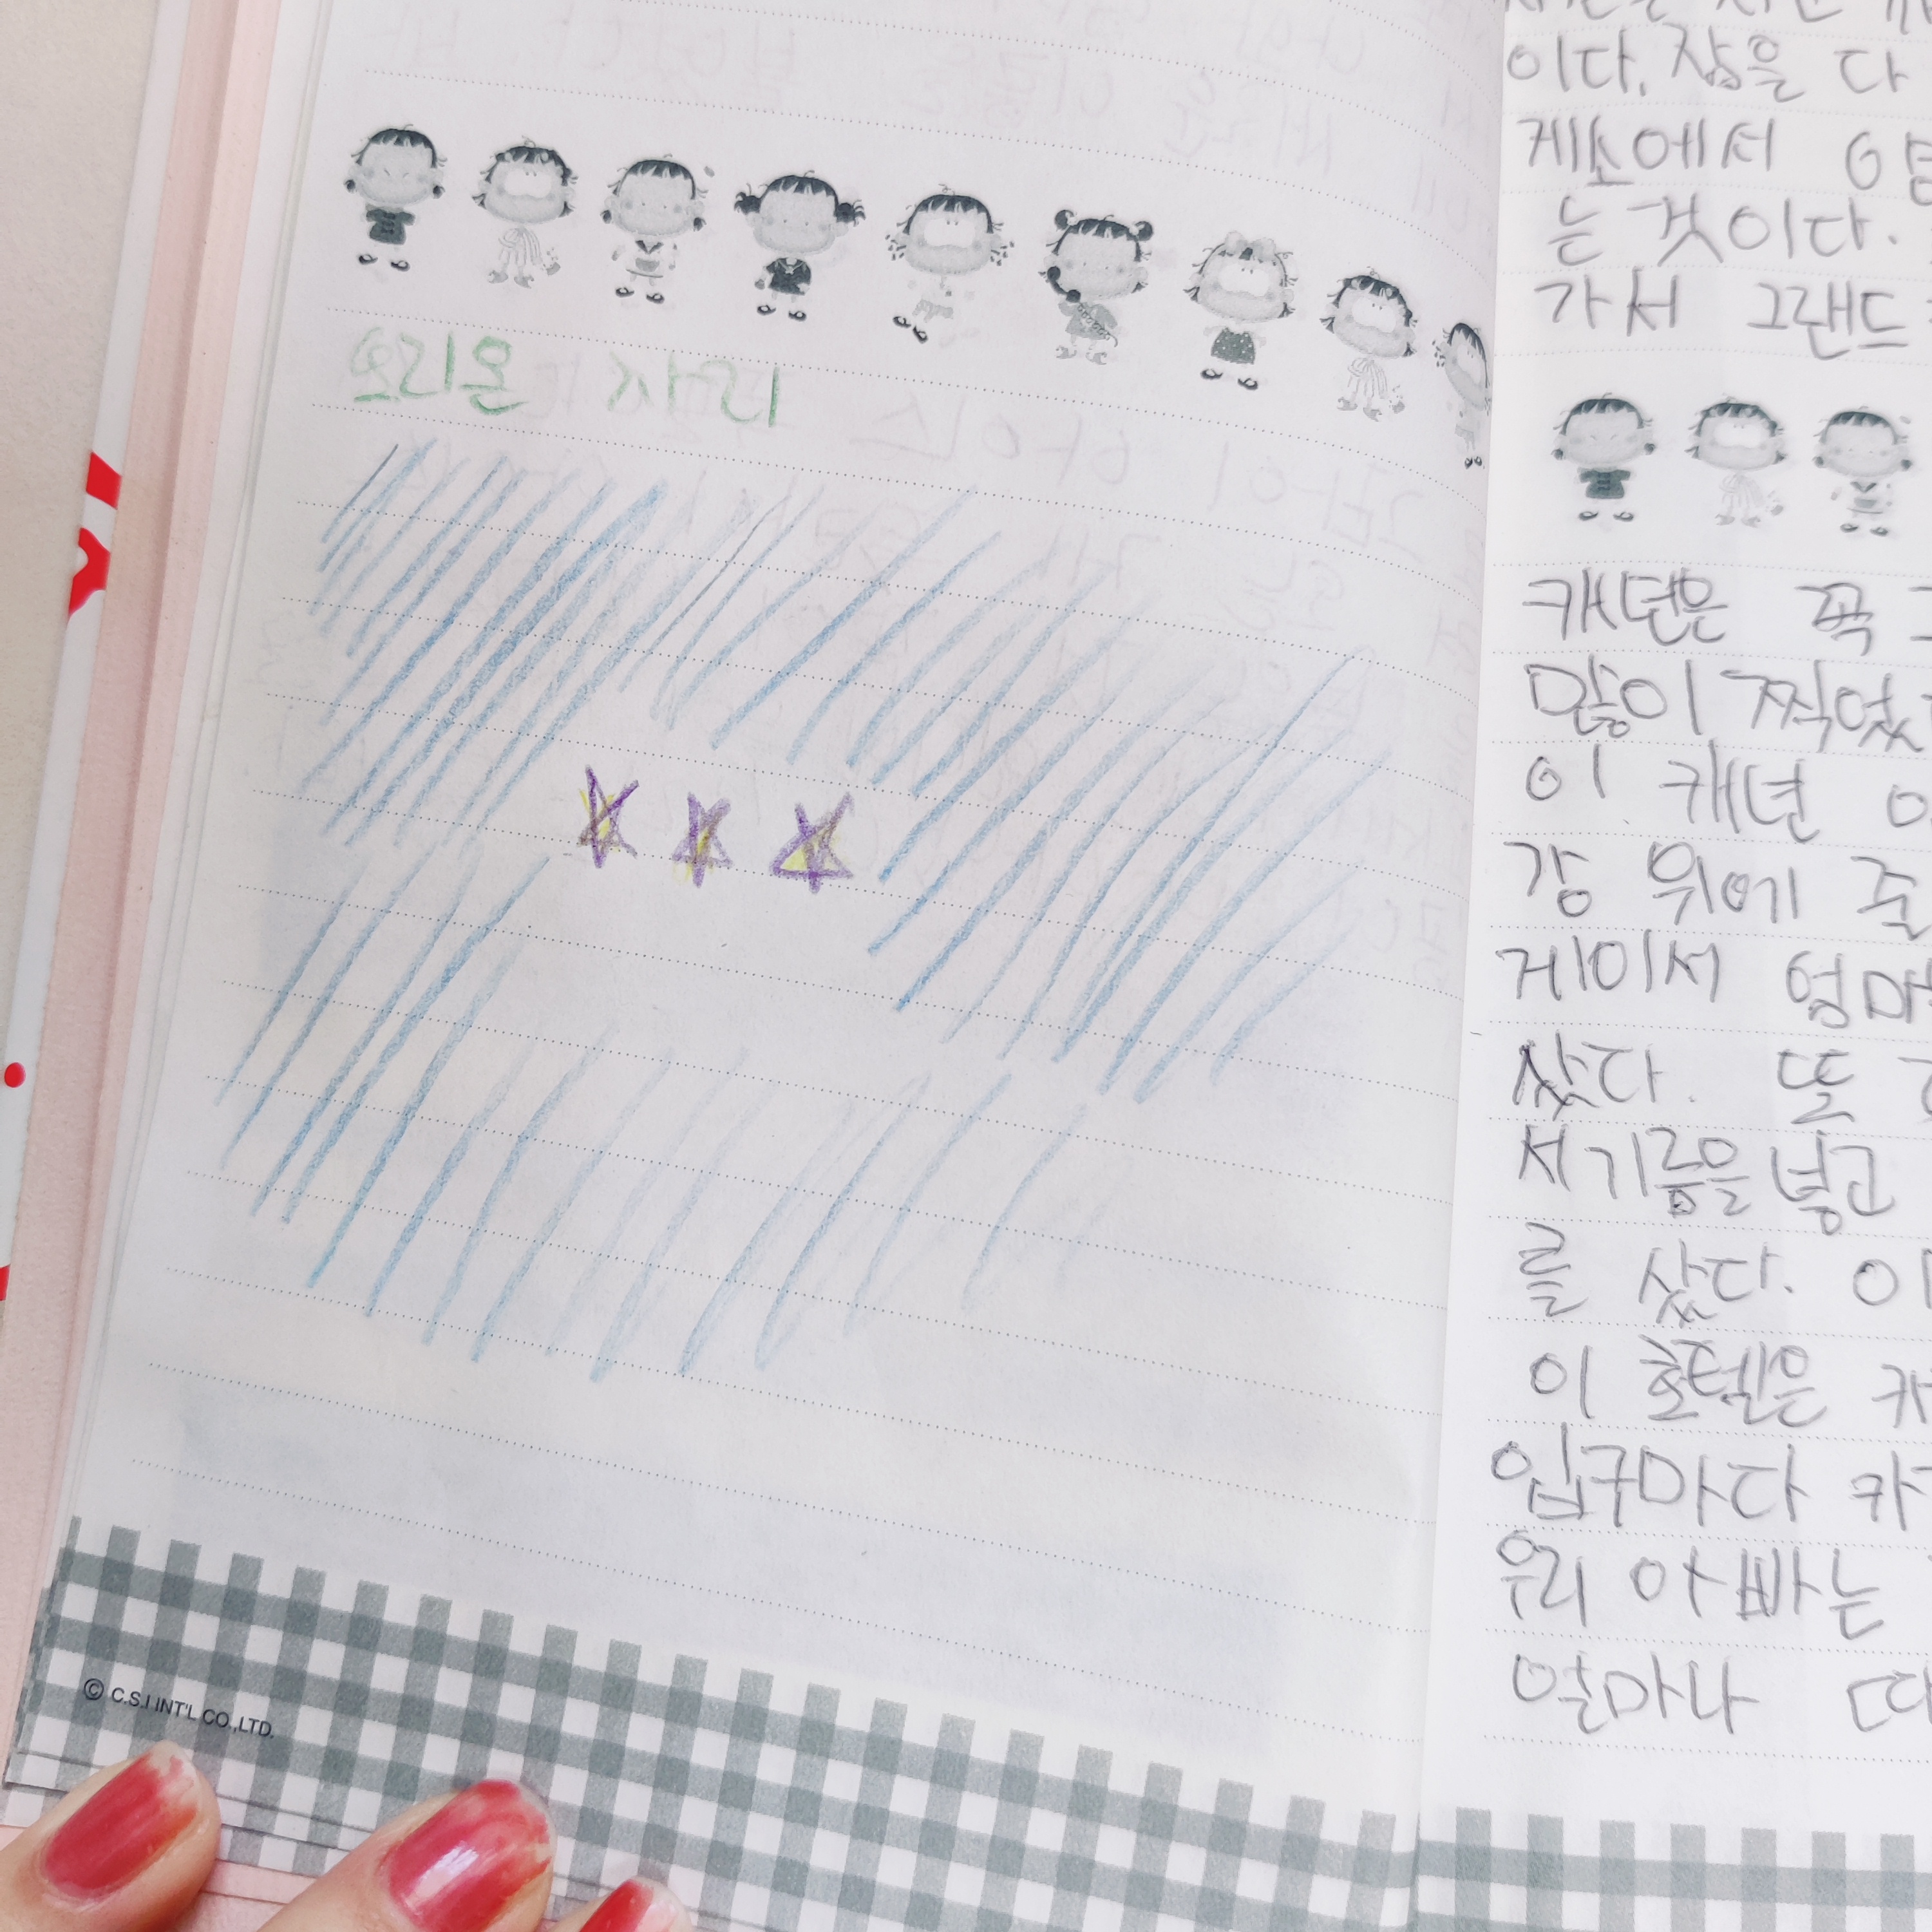 요리온 자리
© C.S.I INT'L CO.,LTD.
이다. 잠을 다
게소에서 6
는 것이다.
가서 그랜드
캐년은 꼭
많이 찍었
이 캐년
강 위에 줄
게이서 엄마
샀다. 또
서 기름을 넣고
를 샀다.
이 호텔은
입구마다 카
우리 아빠는
얼마나 따